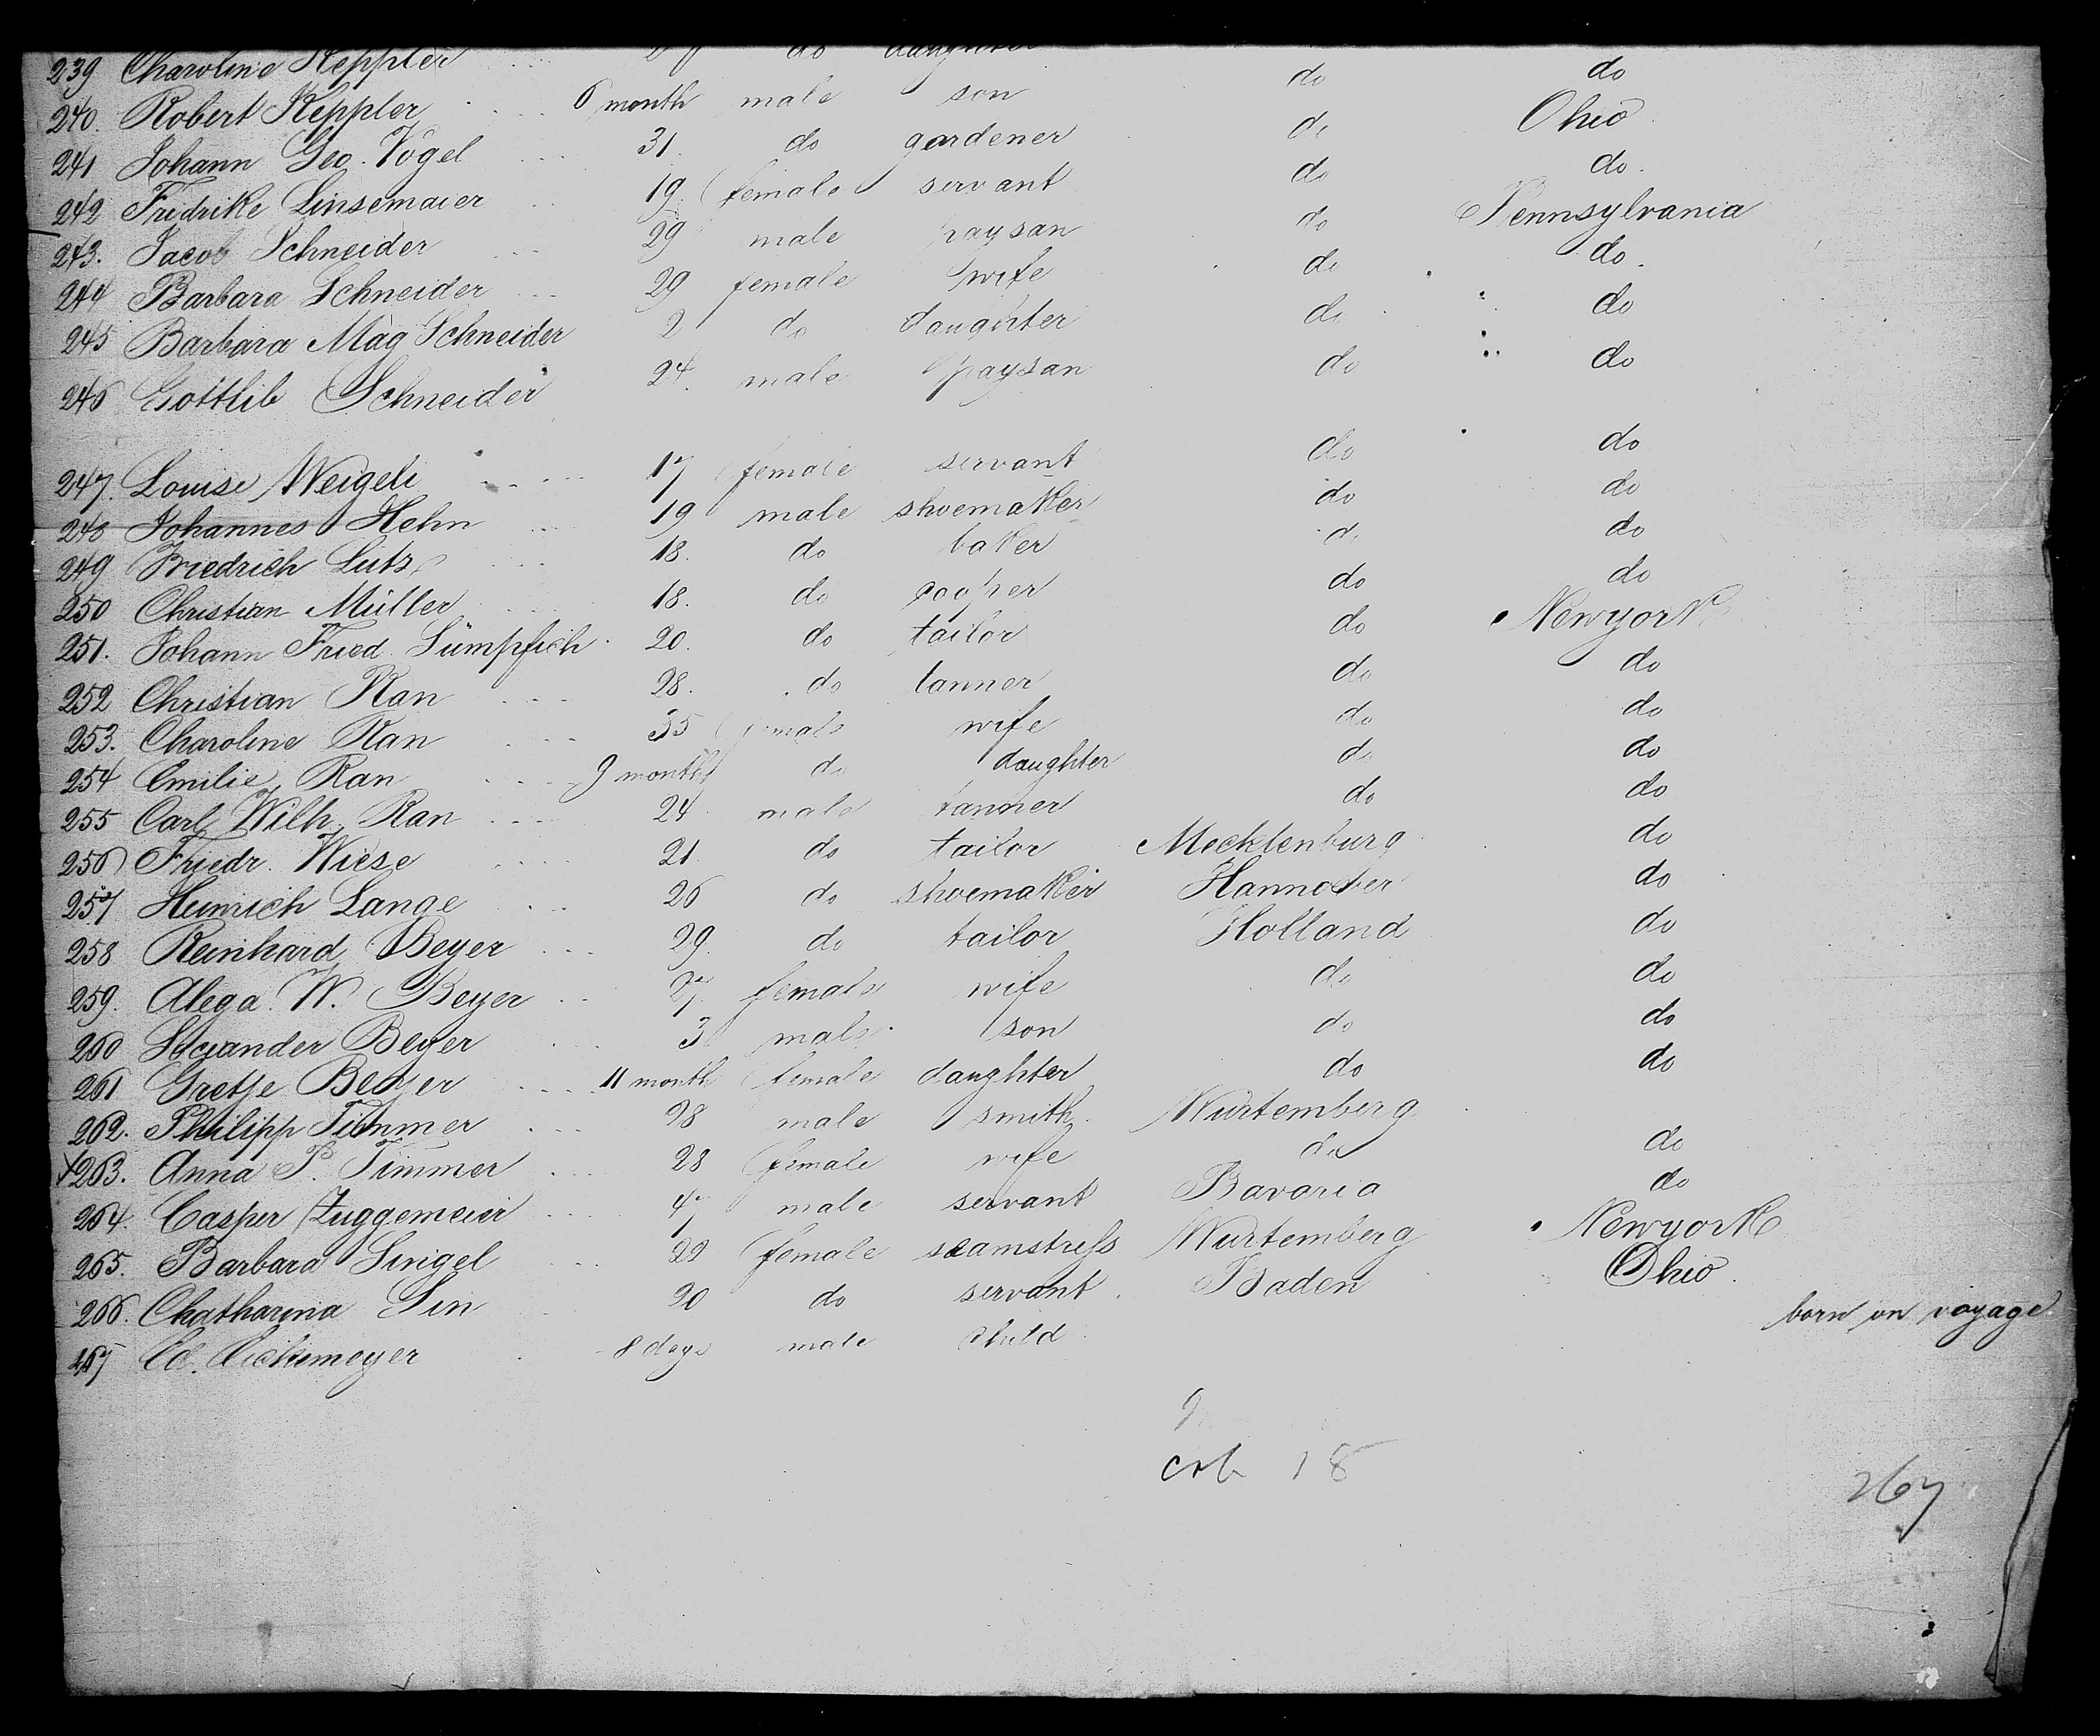 239 Charoline Keppler do daughter do do
240. Robert Keppler 6 month male son do Ohio
241 Johann Geo. Vogel 31. do gardener do do.
242 Fridrike Linsemaier 19. female servant do Pennsylvania
243. Jacob Schneider 29 male paysan do do.
244 Barbara Schneider 29 female wife do do
245 Barbara Mag Schneider 2 do daughter do do
246 Gottlib Schneider 24. male paysan
247. Louise Weigeli 17 female servant do do
248 Johannes Hehn 19 male shoemaker do do
249 Friedrich Lutz 18. do baker do do
250 Christian Müller 18. do cooper do do
251. Johann Fried. 20. do tailor do Newyork
252 Christian Ran 28. do tanner do do
253. Charoline Ran 35 female wife do do
254 Emilie Ran 9 month do daughter do do
255 Carl Wilh. Ran 24 male tanner do do
256 Friedr. Wiese 21. do tailor Mecklenburg do
257 Heinrich Lange 26 do shoemaker Hannover do
258 Reinhard Beyer 29. do tailor Holland do
259. Alega W. Beyer 27. female wife do do
260 Beyer 3 male son do do
261 Gretje Beyer 11 month female daughter do do
262. Philipp Timmer 28 male smith. Würtemberg
263. Anna P. Timmer 28 female wife do do
264. Casper Zuggemeier 47 male servant Bavaria do
265. Barbara Singel 22 female seamstress Würtemberg Newyork
266. Chatharina Sin 20 do servant. Baden Ohio.
267 Ed. Eickemeyer 8 days male child born on voyage
18
267